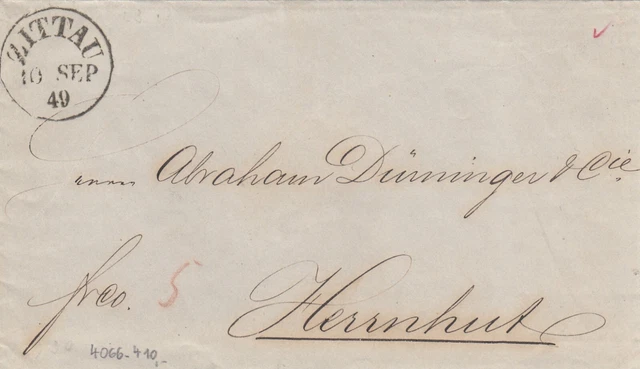 ZITTAU
10 SEP
49
Abraham Dürninger & Cie
frco. 5
Herrnhut
4066-410,-